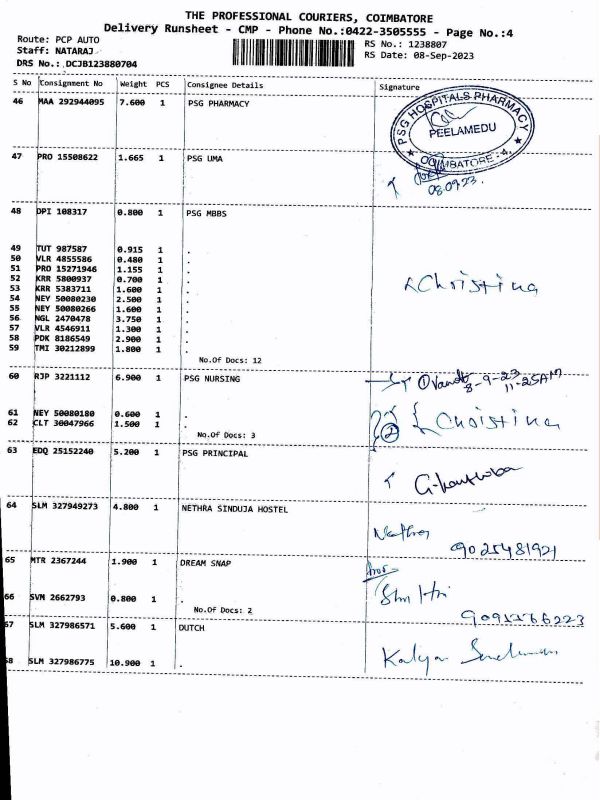 THE PROFESSIONAL COURIERS, COIMBATORE
Delivery Runsheet - CMP - Phone No.:0422-3505555 - Page No.:4
Route: PCP AUTO
RS No.: 1238807
Staff: NATARAJ
RS Date: 08-Sep-2023
DRS No.: DCJB123880704
S No Consignment No Weight PCS Consignee Details Signature
46 MAA 292944095 7.600 1 PSG PHARMACY
PSG HOSPITALS PHARMACY
PEELAMEDU
COIMBATORE-4.
47 PRO 15508622 1.665 1 PSG UMA
08.09.23.
48 DPI 108317 0.800 1 PSG MBBS
49 TUT 987587 0.915 1 .
50 VLR 4855586 0.480 1 .
51 PRO 15271946 1.155 1 .
52 KRR 5800937 0.700 1 .
53 KRR 5383711 1.600 1 .
Christina
54 NEY 50080230 2.500 1 .
55 NEY 50080266 1.600 1 .
56 NGL 2470478 3.750 1 .
57 VLR 4546911 1.300 1 .
58 PDK 8186549 2.900 1 .
59 TMI 30212899 1.800 1 .
No.Of Docs: 12
60 RJP 3221112 6.900 1 PSG NURSING
① 8-9-23
11-25AM
61 NEY 50080180 0.600 1 .
62 CLT 30047966 1.500 1 .
② Christina
No.Of Docs: 3
63 EDQ 25152240 5.200 1 PSG PRINCIPAL
64 SLM 327949273 4.800 1 NETHRA SINDUJA HOSTEL
Nethra
9025481921
65 MTR 2367244 1.900 1 DREAM SNAP
66 SVM 2662793 0.800 1 .
No.Of Docs: 2
67 SLM 327986571 5.600 1 DUTCH
Kalyan
68 SLM 327986775 10.900 1 .